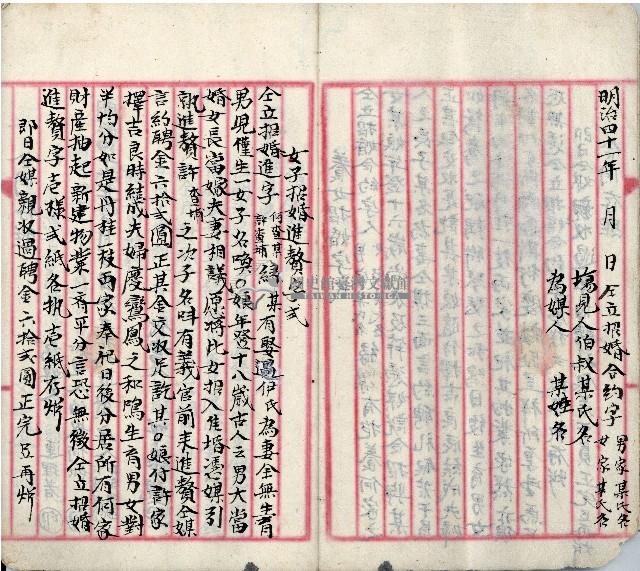 明治四十一年 月 日仝立招婚合約字
男家某氏名
女家某氏名
塲見人伯叔某氏名
為媒人 某姓名
女子招婚進贅字式
仝立招婚進字
何查某
許查埔
緣某有娶過伊氏為妻仝無生育
男兒僅生一女子名喚〇娘年登十八歲古人云男大當
婚女長當嫁夫妻相議愿將此女招入佳婿憑媒引
就進贅許
查埔
之次子名呌有義官前來進贅仝媒
言約聘金六拾弍圓正其金交收足訖其〇娘付許家
擇吉良時結成夫婦慶鸞鳳之和鳴生育男女對
半均分如是丹桂一枝両家奉祀日後分居所有何家
財產抽起新建物業一齊平分言恐無徵仝立招婚
進贅字壱樣弍紙各执壱紙存炤
即日仝媒親收過聘金六拾弍圓正完足再炤
國史館臺灣文獻館
TAIWAN HISTORICA